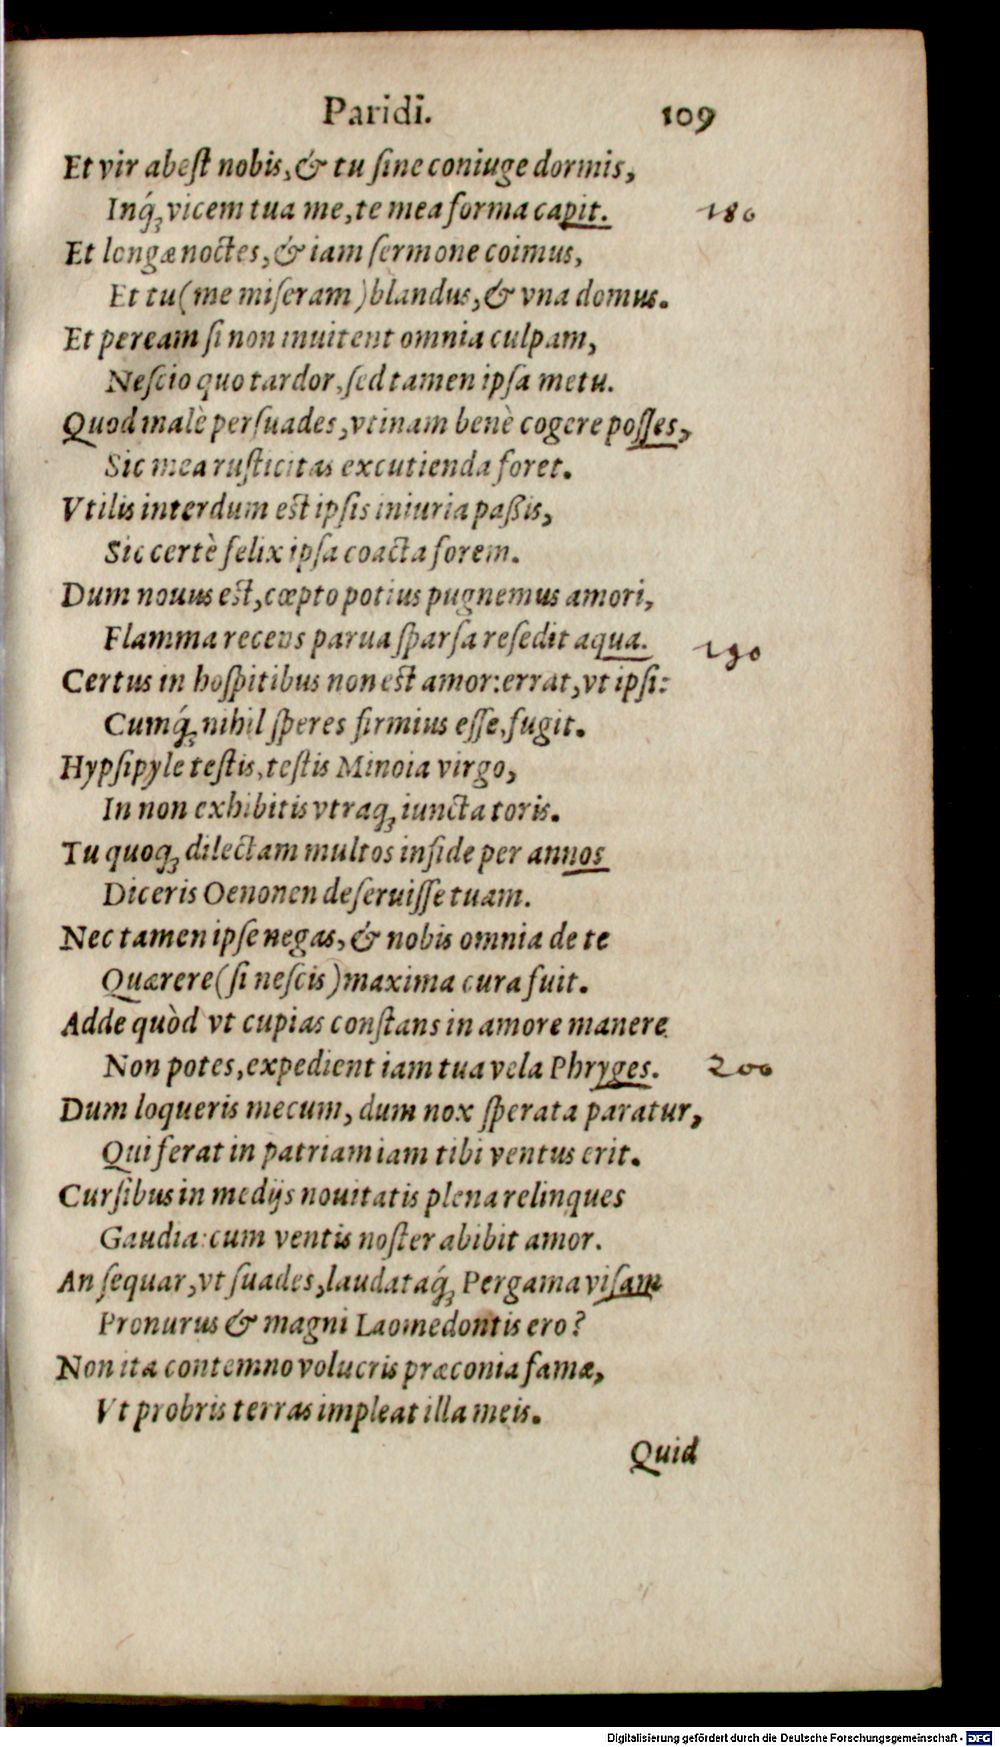 Paridi. 109
Et vir abest nobis, & tu sine coniuge dormis,
Inq́ꝫ vicem tua me, te mea forma capit. 180
Et longæ noctes, & iam sermone coimus,
Et tu (me miseram) blandus, & vna domus.
Et peream si non inuitent omnia culpam,
Nescio quo tardor, sed tamen ipsa metu.
Quod malè persuades, vtinam benè cogere posses,
Sic mea rusticitas excutienda foret.
Vtilis interdum est ipsis iniuria paßis,
Sic certè felix ipsa coacta forem.
Dum nouus est, cœpto potius pugnemus amori,
Flamma recens parua sparsa resedit aqua. 190
Certus in hospitibus non est amor: errat, vt ipsi:
Cumq́ꝫ nihil speres firmius esse, fugit.
Hypsipyle testis, testis Minoia virgo,
In non exhibitis vtraqꝫ iuncta toris.
Tu quoqꝫ dilectam multos infide per annos
Diceris Oenonen deseruisse tuam.
Nec tamen ipse negas, & nobis omnia de te
Quærere (si nescis) maxima cura fuit.
Adde quòd vt cupias constans in amore manere
Non potes, expedient iam tua vela Phryges. 200
Dum loqueris mecum, dum nox sperata paratur,
Qui ferat in patriam iam tibi ventus erit.
Cursibus in medijs nouitatis plena relinques
Gaudia: cum ventis noster abibit amor.
An sequar, vt suades, laudataq́ꝫ Pergama visam
Pronurus & magni Laomedontis ero?
Non ita contemno volucris præconia famæ,
Vt probris terras impleat illa meis.
Quid
Digitalisierung gefördert durch die Deutsche Forschungsgemeinschaft - DFG